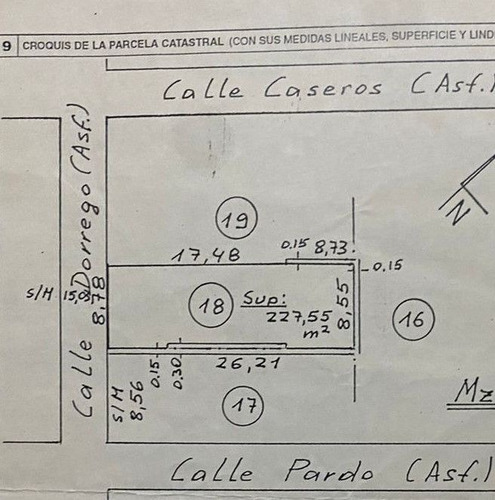 9 CROQUIS DE LA PARCELA CATASTRAL (CON SUS MEDIDAS LINEALES, SUPERFICIE Y LIND
Calle Caseros (Asf.)
Calle Dorrego (Asf.)
N
19
17,48
0.15 8,73
0.15
S/M
8,78
18
Sup:
227,55
m²
8,55
16
26,21
0.15
0.30
S/M
8,56
17
Mz
Calle Pardo (Asf.)